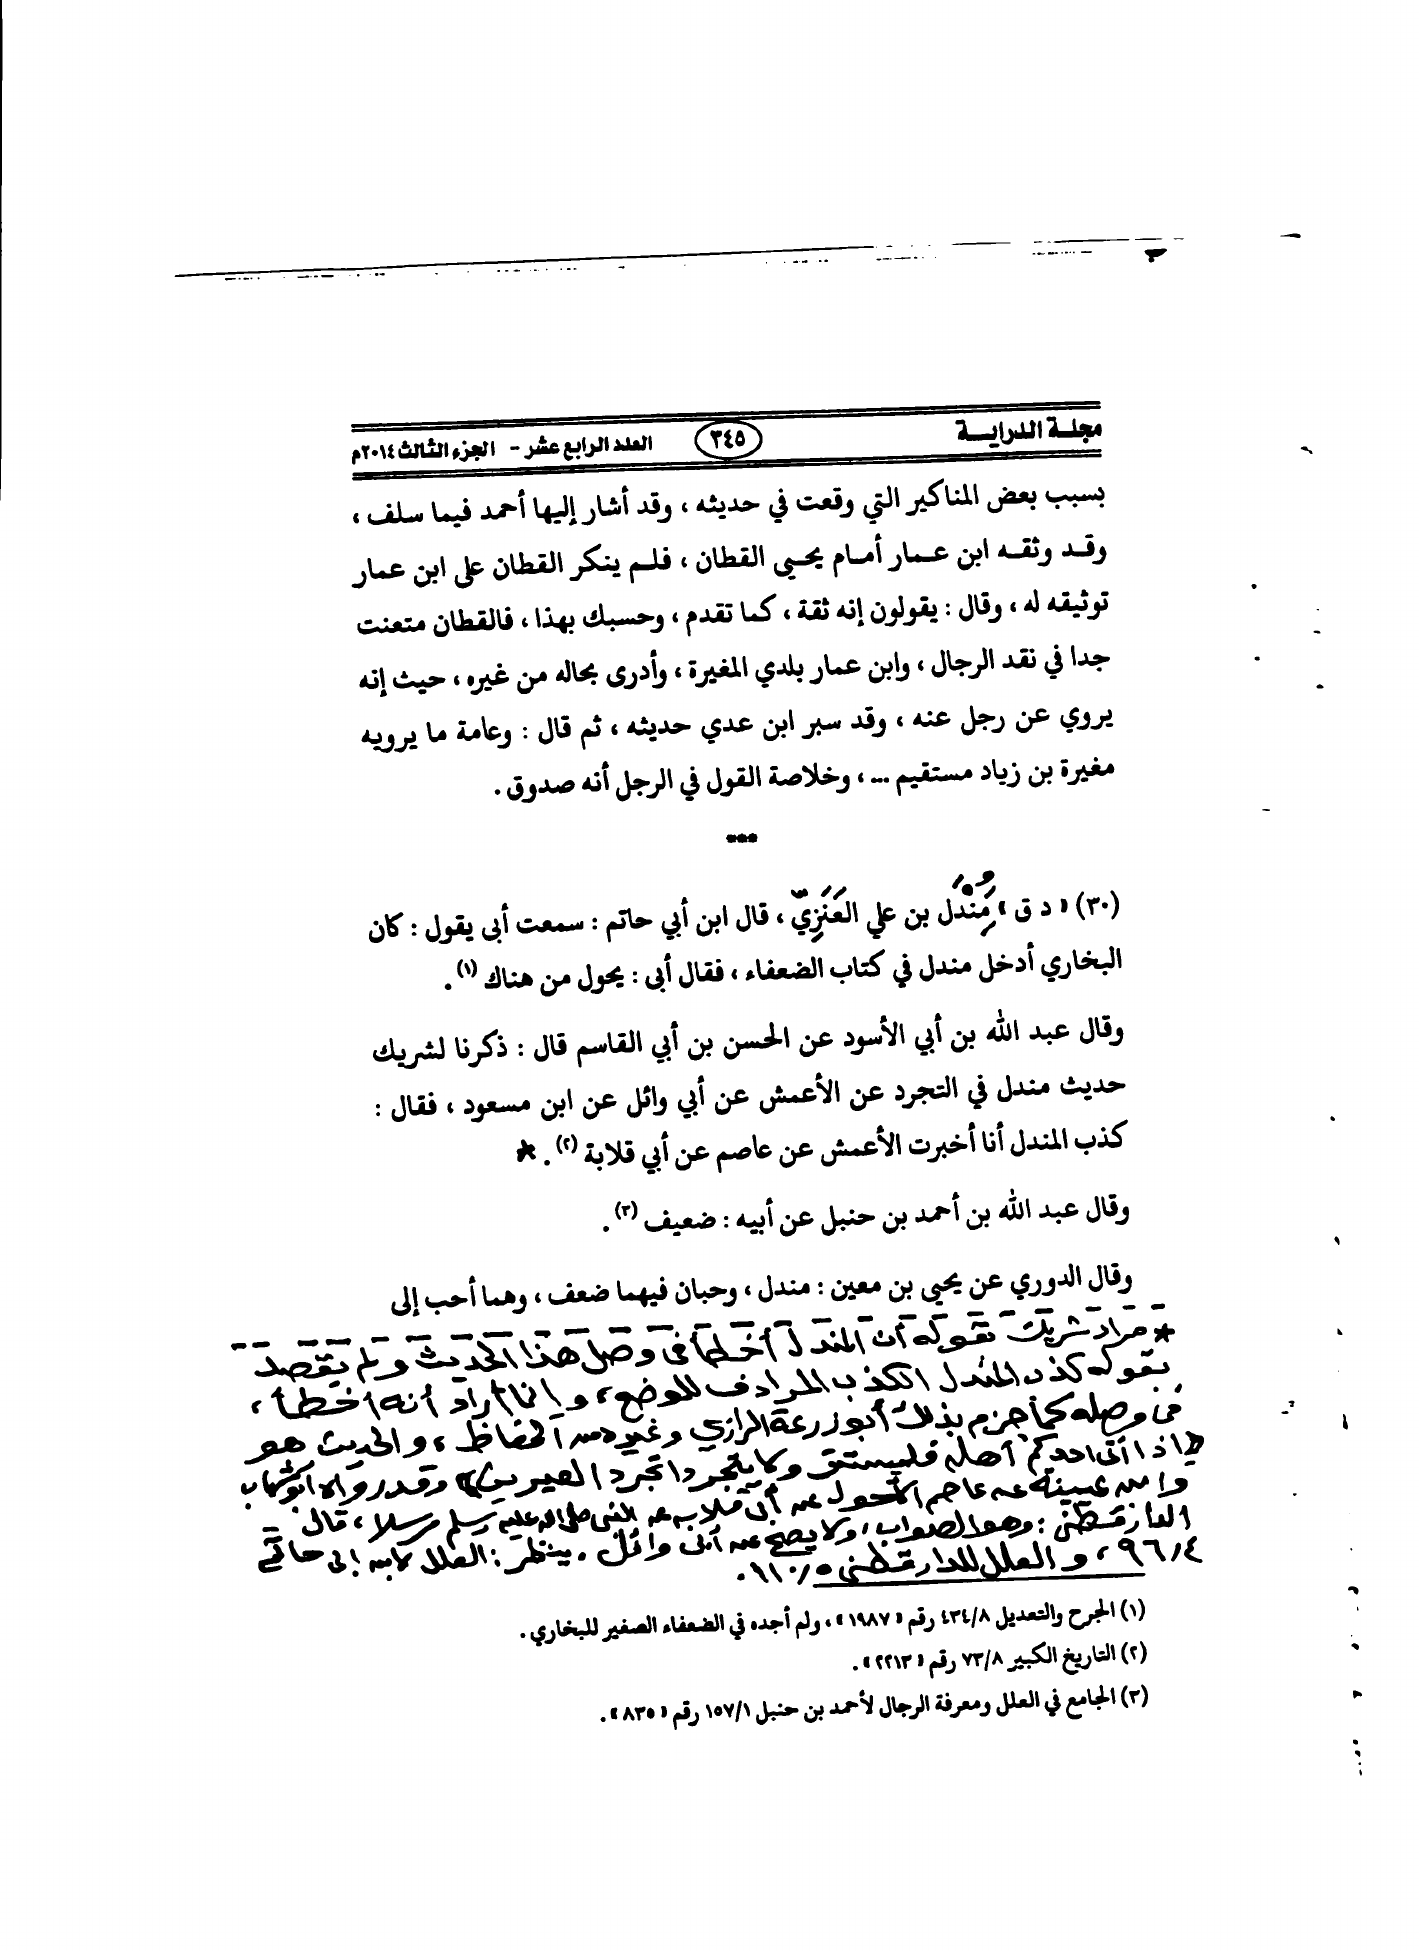 مجلة الدراية
٣٤٥
العدد الرابع عشر - الجزء الثالث ٢٠١٤م
بسبب بعض المناكير التي وقعت في حديثه ، وقد أشار إليها أحمد فيما سلف ،
وقد وثقه ابن عمار أمام يحيى القطان ، فلم ينكر القطان على ابن عمار
توثيقه له ، وقال : يقولون إنه ثقة ، كما تقدم ، وحسبك بهذا ، فالقطان متعنت
جدا في نقد الرجال ، وابن عمار بلدي المغيرة ، وأدرى بحاله من غيره ، حيث إنه
يروي عن رجل عنه ، وقد سبر ابن عدي حديثه ، ثم قال : وعامة ما يرويه
مغيرة بن زياد مستقيم ... ، وخلاصة القول في الرجل أنه صدوق .
***
(٣٠) « د ق » مُِنْدَل بن علي العَنَزِيّ ، قال ابن أبي حاتم : سمعت أبى يقول : كان
البخاري أدخل مندل في كتاب الضعفاء ، فقال أبى : يحول من هناك (١) .
وقال عبد الله بن أبي الأسود عن الحسن بن أبي القاسم قال : ذكرنا لشريك
حديث مندل في التجرد عن الأعمش عن أبي وائل عن ابن مسعود ، فقال :
كذب المندل أنا أخبرت الأعمش عن عاصم عن أبي قلابة (٢) . *
وقال عبد الله بن أحمد بن حنبل عن أبيه : ضعيف (٣) .
وقال الدوري عن يحيى بن معين : مندل ، وحبان فيهما ضعف ، وهما أحب إلى
* مراد شريك بقوله أن المندل أخطأ فى وصل هذا الحديث ولم يقصد
بقوله كذب المندل الكذب المرادف للوضع ، وإنما أراد أنه أخطأ ،
فى وصله كما جزم بذلك أبو زرعة الرازي وغيره من الحفاظ ، والحديث هو
« إذا أتى احدكم أهله فليستتر ولا يتجردا تجرد العيرين » وقد رواه ابو شهاب
وابن عيينة عن عاصم الأحول عن أبى قلابة عن النبى صلى الله عليه وسلم مرسلا ، قال
الدارقطنى : وهو الصواب ، ولا يصح عن أبى وائل . ينظر : العلل لابن ابى حاتم
٤/ ٩٦ ، والعلل للدارقطنى ٥/ ١١٠ .
(١) الجرح والتعديل ٤٣٤/٨ رقم « ١٩٨٧ » ، ولم أجده في الضعفاء الصغير للبخاري .
(٢) التاريخ الكبير ٧٣/٨ رقم « ٢٢١٣ » .
(٣) الجامع في العلل ومعرفة الرجال لأحمد بن حنبل ١٥٧/١ رقم « ٨٣٥ » .